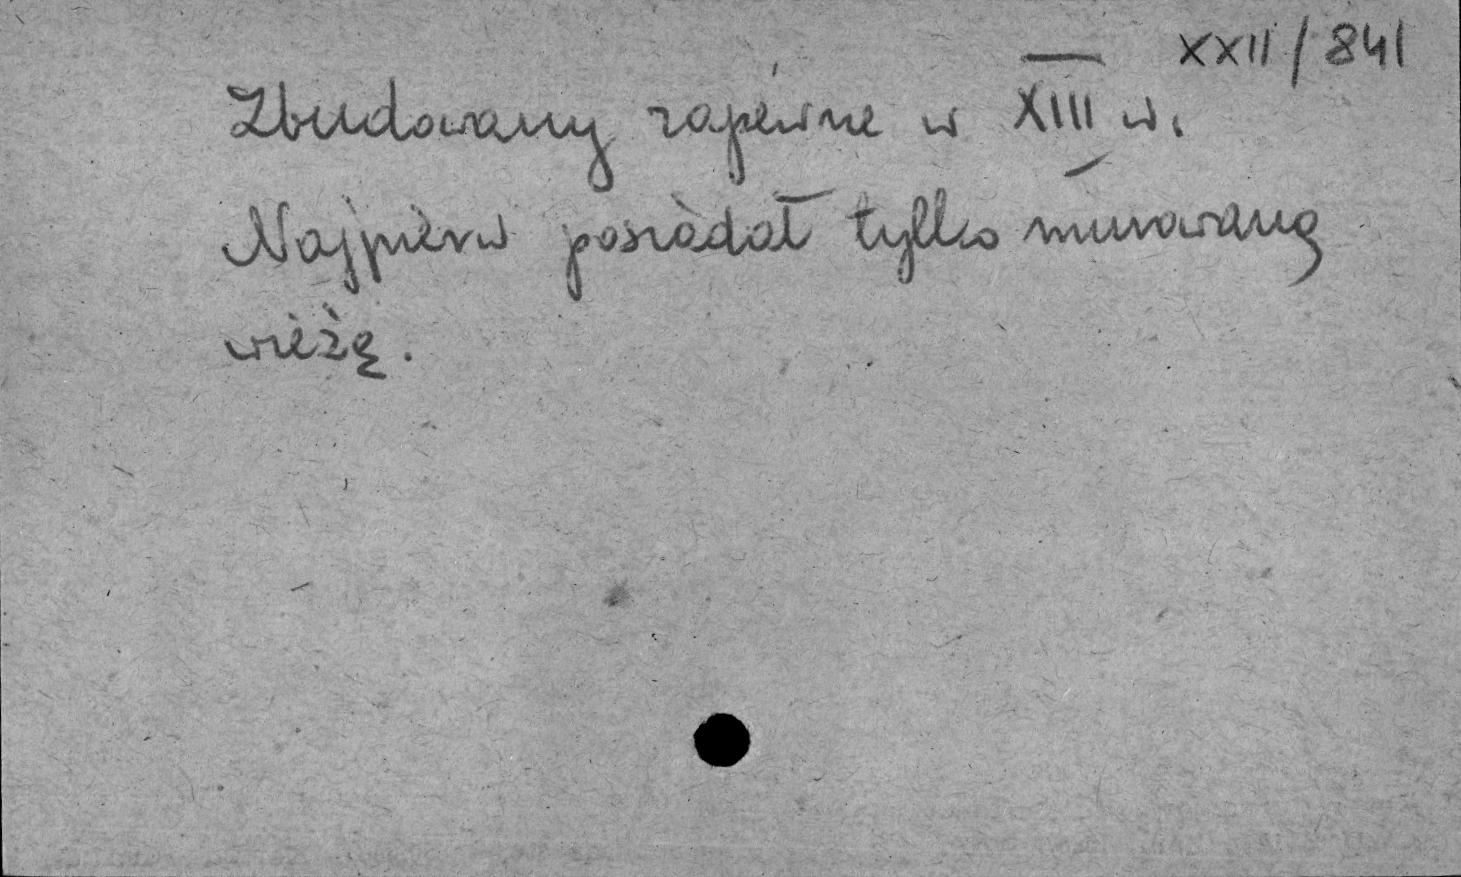 XXII/841
Zbudowany zapewne w XIII w.
Najpierw posiadał tylko murowaną
wieżę.